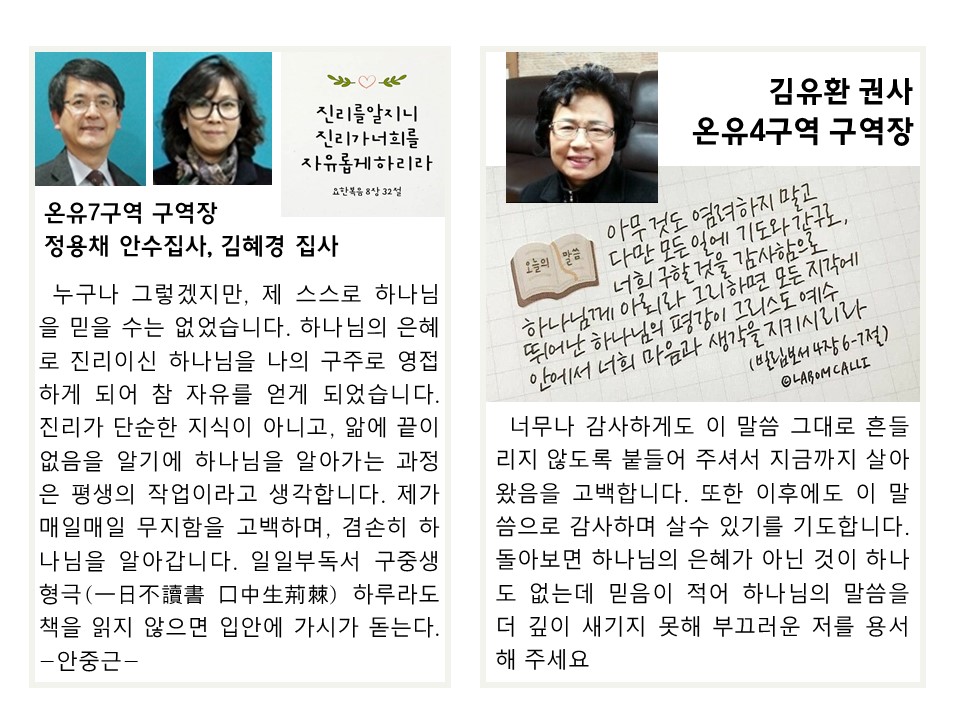 진리를알지니
진리가너희를
자유롭게하리라
요한복음 8장 32절
온유7구역 구역장
정용채 안수집사, 김혜경 집사
누구나 그렇겠지만, 제 스스로 하나님
을 믿을 수는 없었습니다. 하나님의 은혜
로 진리이신 하나님을 나의 구주로 영접
하게 되어 참 자유를 얻게 되었습니다.
진리가 단순한 지식이 아니고, 앎에 끝이
없음을 알기에 하나님을 알아가는 과정
은 평생의 작업이라고 생각합니다. 제가
매일매일 무지함을 고백하며, 겸손히 하
나님을 알아갑니다. 일일부독서 구중생
형극(一日不讀書 口中生荊棘) 하루라도
책을 읽지 않으면 입안에 가시가 돋는다.
-안중근-
김유환 권사
온유4구역 구역장
오늘의 말씀
아무 것도 염려하지 말고
다만 모든 일에 기도와 간구로,
너희 구할 것을 감사함으로
하나님께 아뢰라 그리하면 모든 지각에
뛰어난 하나님의 평강이 그리스도 예수
안에서 너희 마음과 생각을 지키시리라
(빌립보서 4장 6-7절)
©LABOMCALLI
너무나 감사하게도 이 말씀 그대로 흔들
리지 않도록 붙들어 주셔서 지금까지 살아
왔음을 고백합니다. 또한 이후에도 이 말
씀으로 감사하며 살수 있기를 기도합니다.
돌아보면 하나님의 은혜가 아닌 것이 하나
도 없는데 믿음이 적어 하나님의 말씀을
더 깊이 새기지 못해 부끄러운 저를 용서
해 주세요